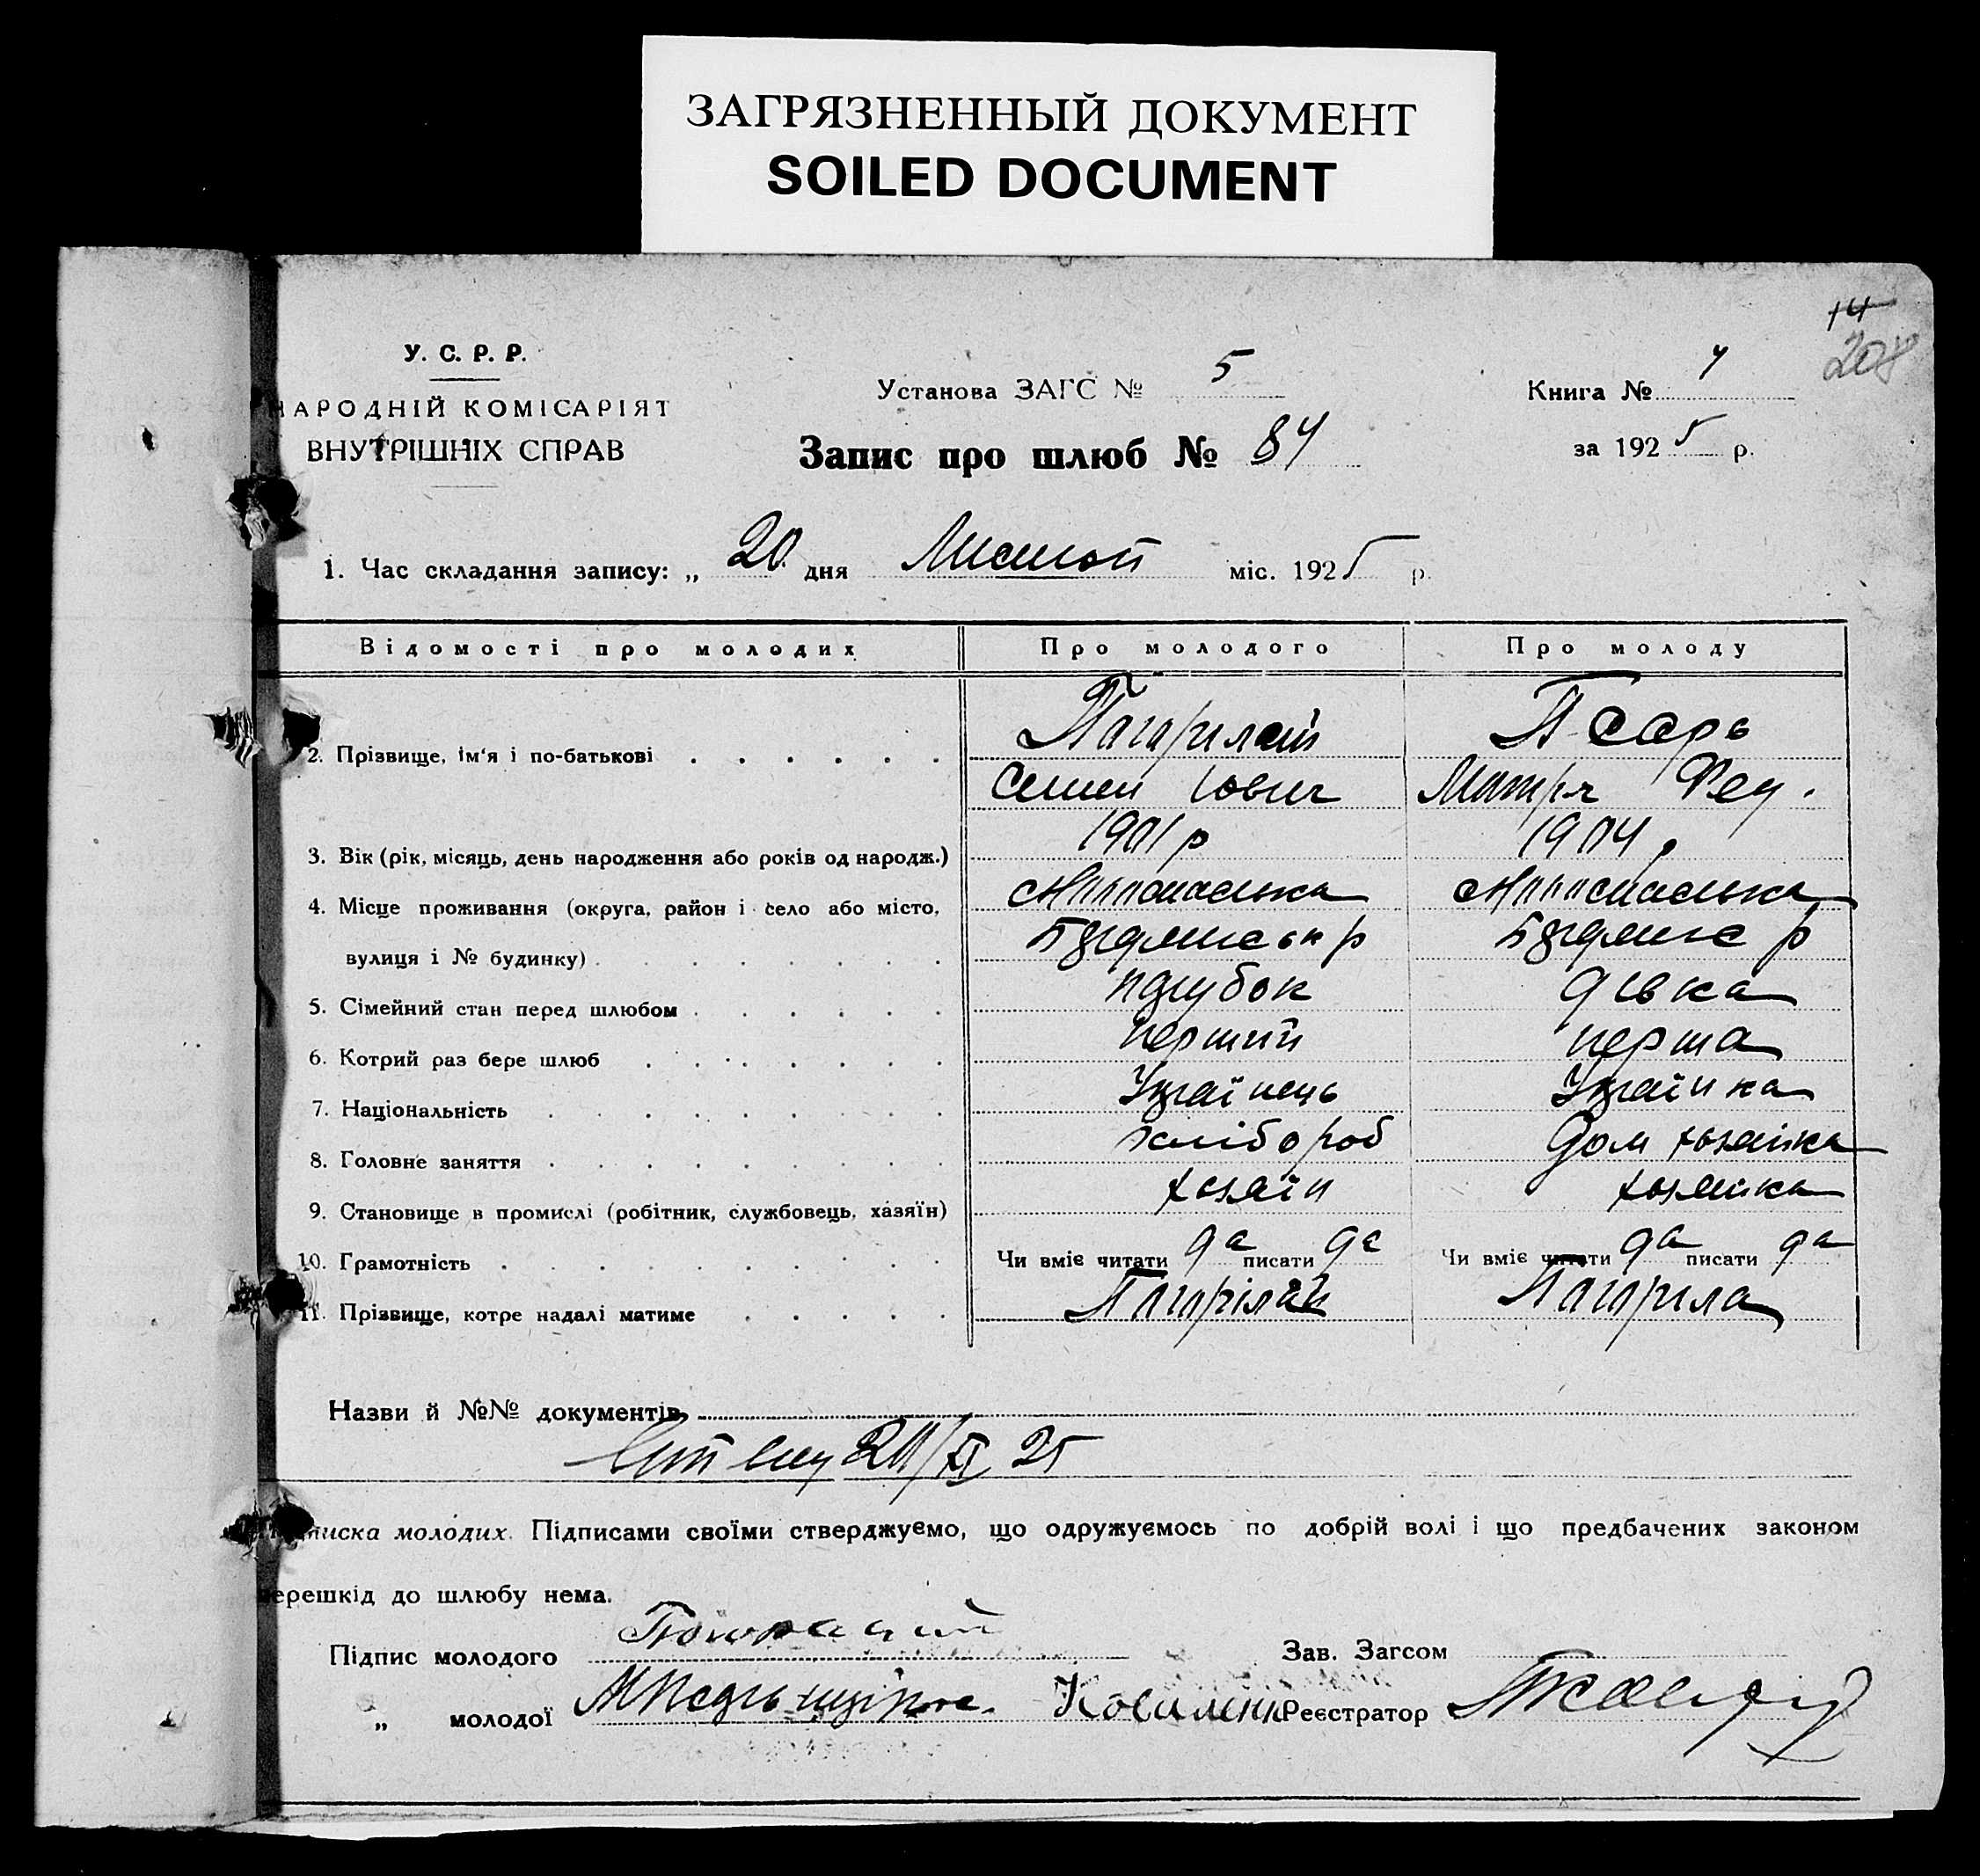 ЗАГРЯЗНЕННЫЙ ДОКУМЕНТ
SOILED DOCUMENT
14
208
У. С. Р. Р.
НАРОДНІЙ КОМІСАРІЯТ
ВНУТРІШНІХ СПРАВ
Установа ЗАГС № 5
Книга №
Запис про шлюб № 84
за 1925 р.
1. Час складання запису: „ 20 дня Листоп міс. 1925 р.
Відомості про молодих Про молодого Про молоду
2. Прізвище, ім'я і по-батькові Псарь
Семен Мотря Фед.
3. Вік (рік, місяць, день народження або років од народж.) 1901 р 1904 р
4. Місце проживання (округа, район і село або місто,
вулиця і № будинку)
5. Сімейний стан перед шлюбом парубок дівка
6. Котрий раз бере шлюб перший перша
7. Національність Українець Українка
8. Головне заняття хлібороб дом хозяйка
9. Становище в промислі (робітник, службовець, хазяїн) хозяїн хозяйка
10. Грамотність Чи вміє читати да писати да Чи вміє читати да писати да
11. Прізвище, котре надалі матиме
Назви й №№ документів
20/XI 25
писка молодих. Підписами своїми стверджуємо, що одружуємось по добрій волі і що предбачених законом
перешкід до шлюбу нема.
Підпис молодого Зав. Загсом
„ молодої Коваленк Реєстратор